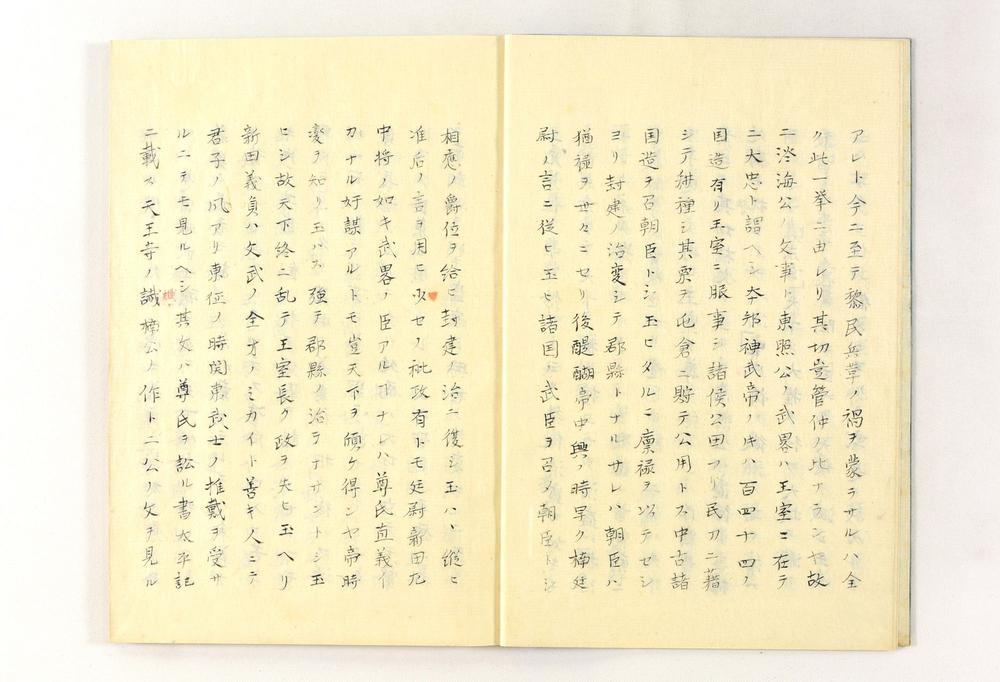 アレト今ニ至テ黎民兵革ノ禍ヲ蒙ラサルハ全
ク此一挙ニ由レリ其切豈管仲ノ比ナランヤ故
ニ淡海公ノ文事ト東照公ノ武畧ハ王室ニ在テ
ニ大忠ト謂ヘシ本邦神武帝ノ時ハ百四十四ノ
国造有リ王室ニ服事シ諸侯公田アリ民力ニ藉
シテ耕種シ其粟ヲ屯倉ニ貯テ公用トス中古諸
国造ヲ召朝臣トシ玉ヒタルニ廩禄ヲ以テセシ
ヨリ封建ノ治変シテ郡縣トナルサレハ朝臣ハ
猶禄ヲ世々ニセリ後醍醐帝中興ノ時早ク楠廷
尉ノ言ニ従ヒ玉ヒ諸国ノ武臣ヲ召メ朝臣トシ
相應ノ爵位ヲ給ヒ封建ノ治ニ復シ玉ハヽ縦ヒ
准后ノ言ヲ用ヒ少セノ秕政有トモ廷尉新田尼
中将ノ如キ武畧ノ臣アルヿナレハ尊氏直義何
カナル奸謀アルトモ豈天下ヲ傾ケ得ンヤ帝時
変ヲ知リ玉ハス強テ郡縣ノ治ヲナサントシ玉
ヒシ故天下終ニ乱テ王室長ク政ヲ失ヒ玉ヘリ
新田義貞ハ文武ノ全才ノミカイト善キ人ニテ
君子ノ風アリ東征ノ時関東武士ノ推戴ヲ受サ
ルニテモ見ルヘシ其文ハ尊氏ヲ訟ル書太平記
ニ載ス天王寺ノ識楠公ノ作ト二公ノ文ヲ見ル